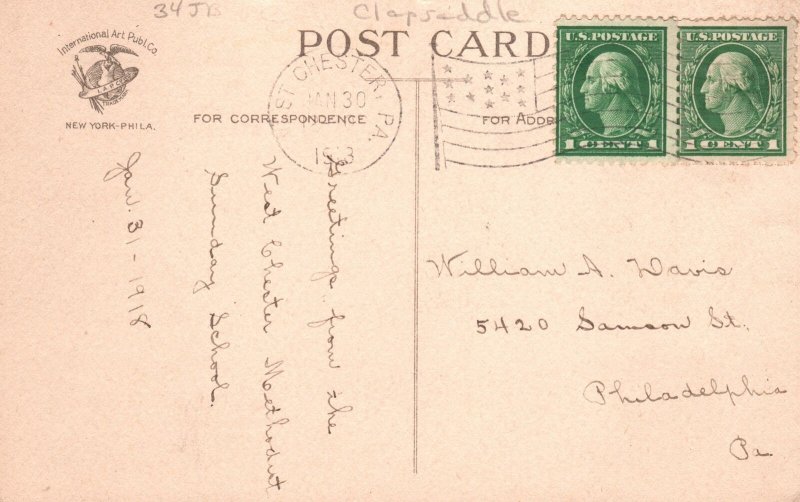 34JB
Clapsaddle
International Art Publ. Co.
NEW YORK-PHILA.
POST CARD
WEST CHESTER, PA.
JAN 30
FOR CORRESPONDENCE
FOR ADD
U.S. POSTAGE
1 CENT 1
U.S. POSTAGE
1 CENT 1
Greetings from the
West Chester Methodist
Sunday School.
Jan. 31-1918
William A. Davis
5420 Samson St.
Philadelphia
Pa